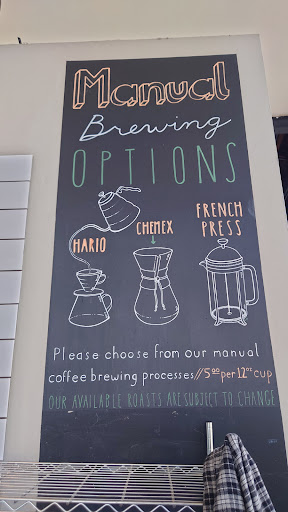 Manual
Brewing
OPTIONS
HARIO
CHEMEX
FRENCH
PRESS
Please choose from our manual
coffee brewing processes//5⁰⁰ per 12ᵒᶻ cup
OUR AVAILABLE ROASTS ARE SUBJECT TO CHANGE